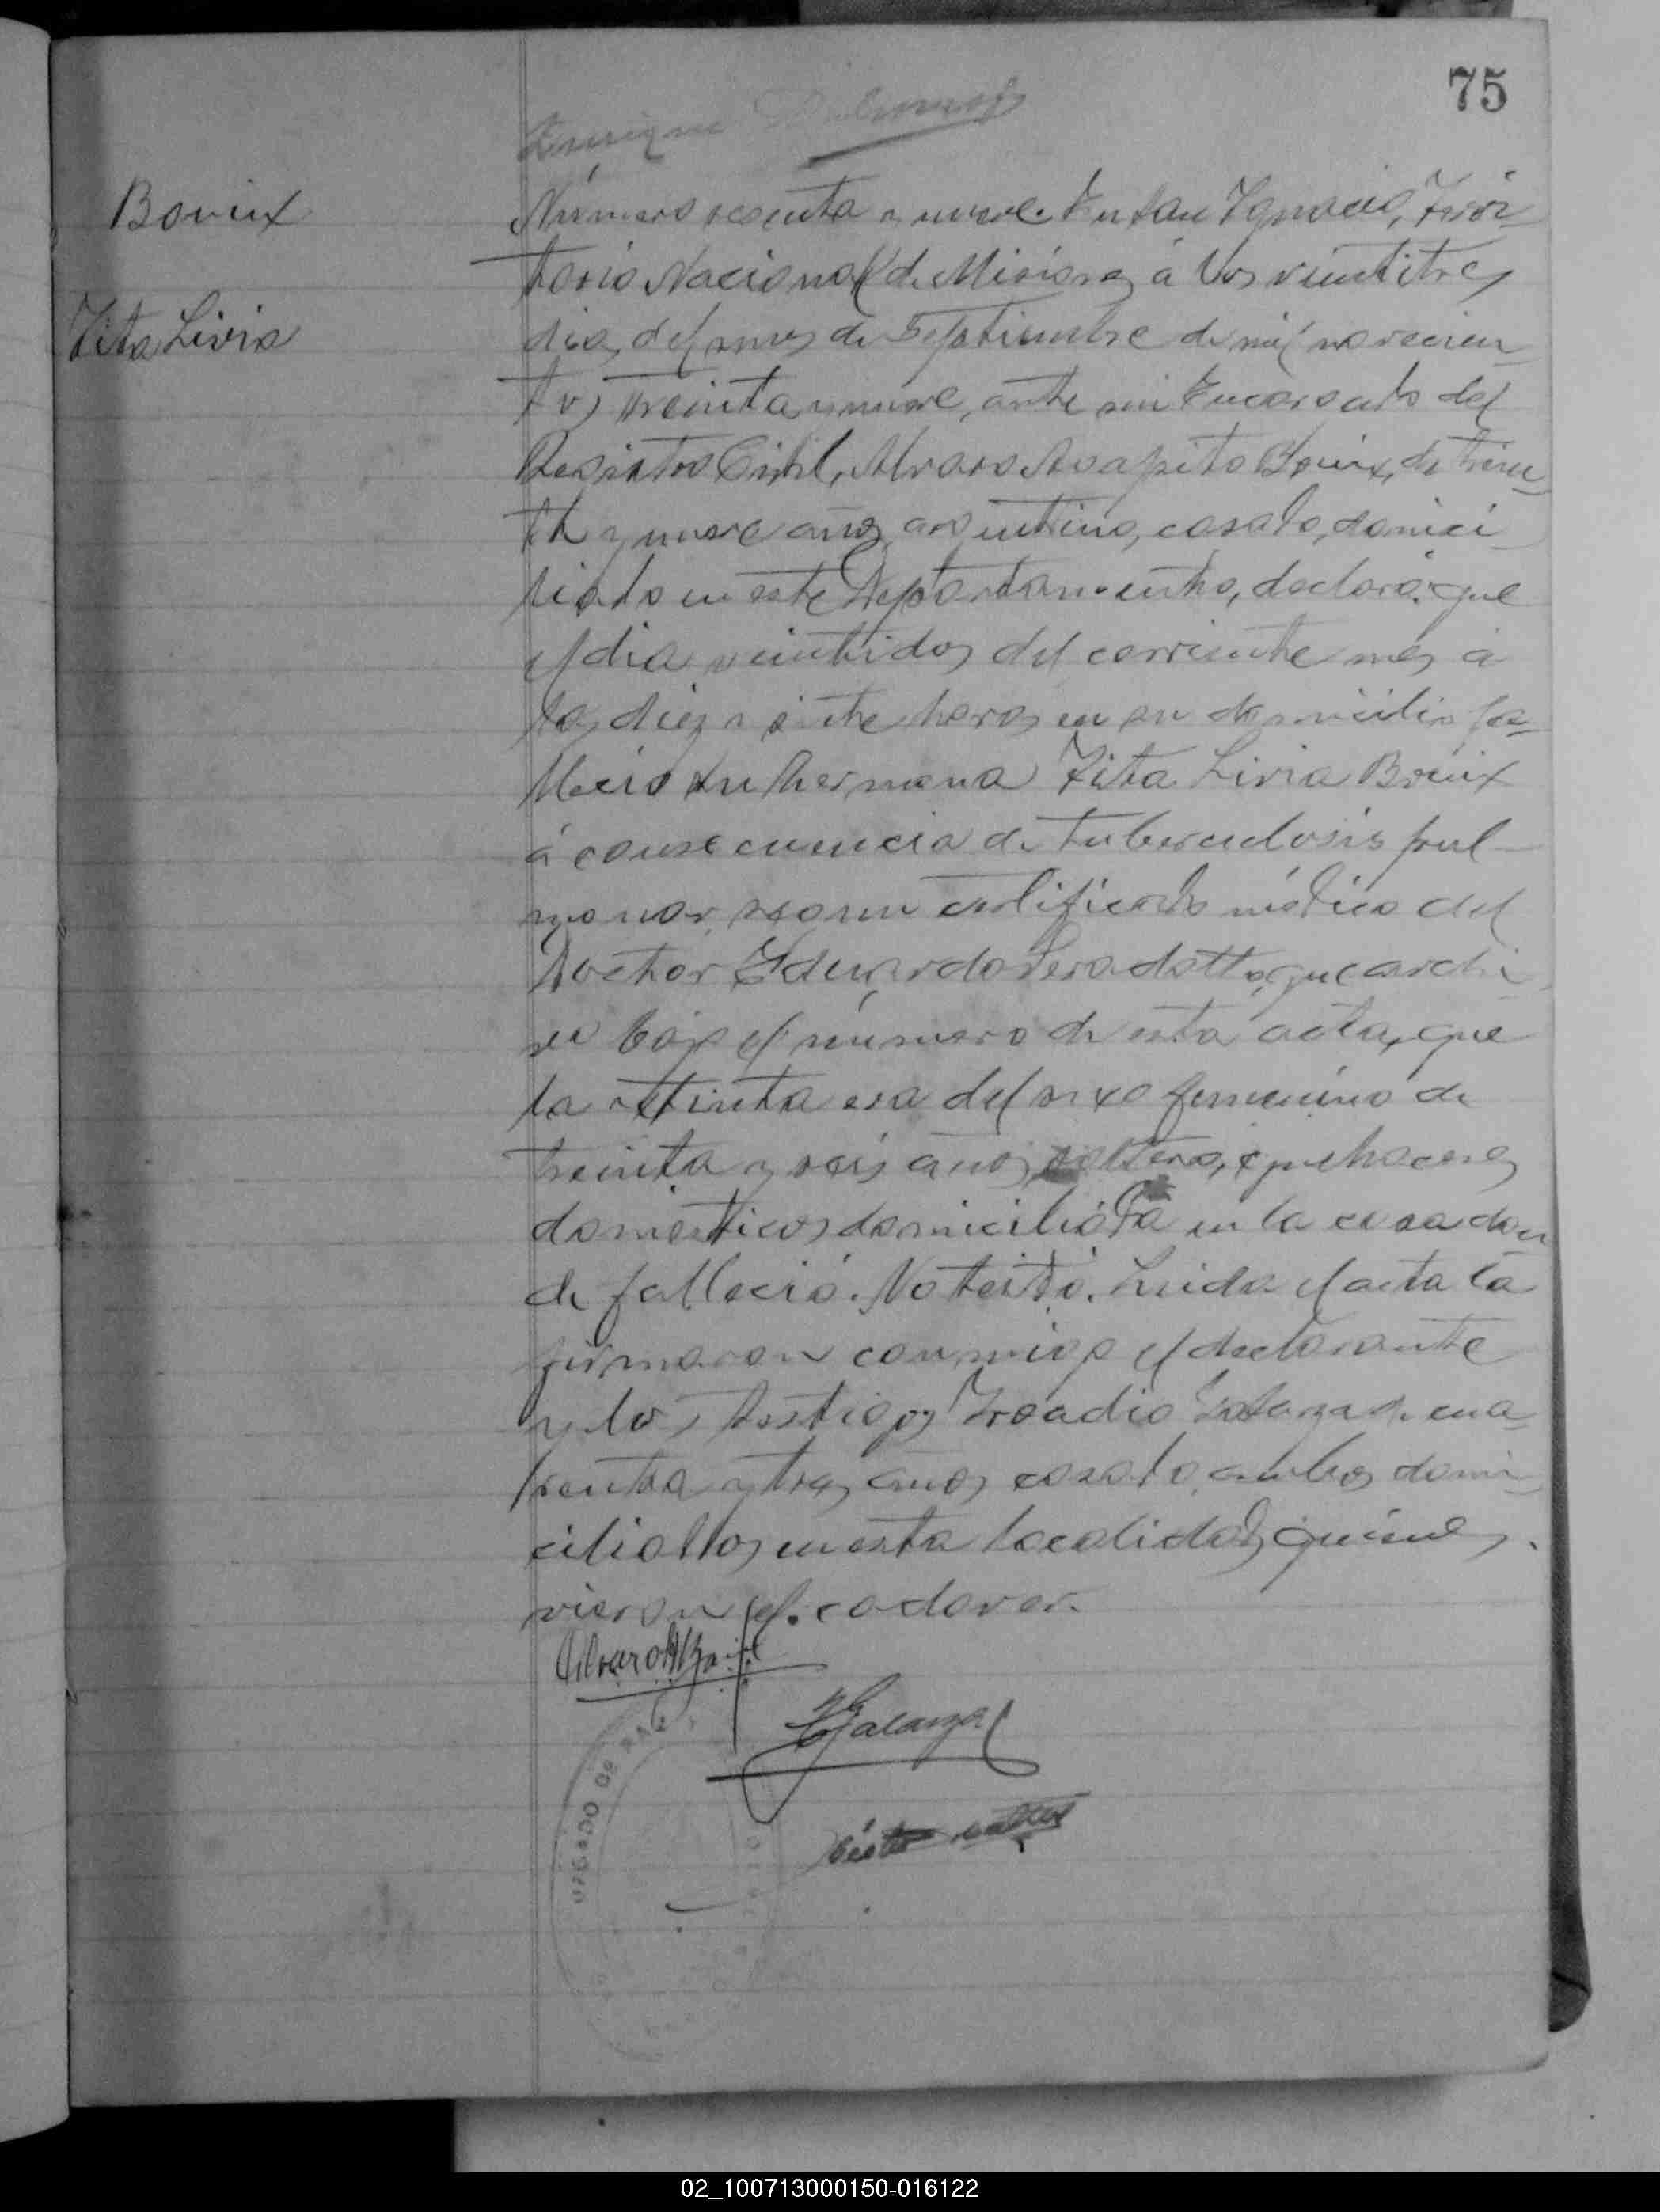 75
Enrique
Bouix
Tita Livia
Número sesenta y nueve. En San Ignacio, Terri-
torio Nacional de Misiones á los veintitres
dias del mes de Septiembre de mil novecien-
tos treinta y nueve, ante mi Encargado del
Registro Civil, Alvaro Agapito Bouix, de trein-
ta y nueve años, argentino, casado, domici-
liado en este Departamento, declaró: que
el dia veintidos del corriente mes á
las diez y siete horas en su domicilio fa-
lleció su hermana Tita Livia Bouix
á consecuencia de tuberculosis pul-
monar, segun certificado médico del
Doctor Eduardo que archi-
vo bajo el número de esta acta, que
la extinta era del sexo femenino de
treinta y seis años, soltera, quehaceres
domésticos domiciliada en la casa don-
de falleció. No testó. Leida el acta la
firmaron conmigo el declarante
y los testigos Troadio Galarza de cua-
renta y tres años casado, ambos domi-
ciliados en esta localidad, quienes
vieron el cadaver.
Alvaro A Bouix
Galarza
JUZGADO DE PAZ
02_100713000150-016122